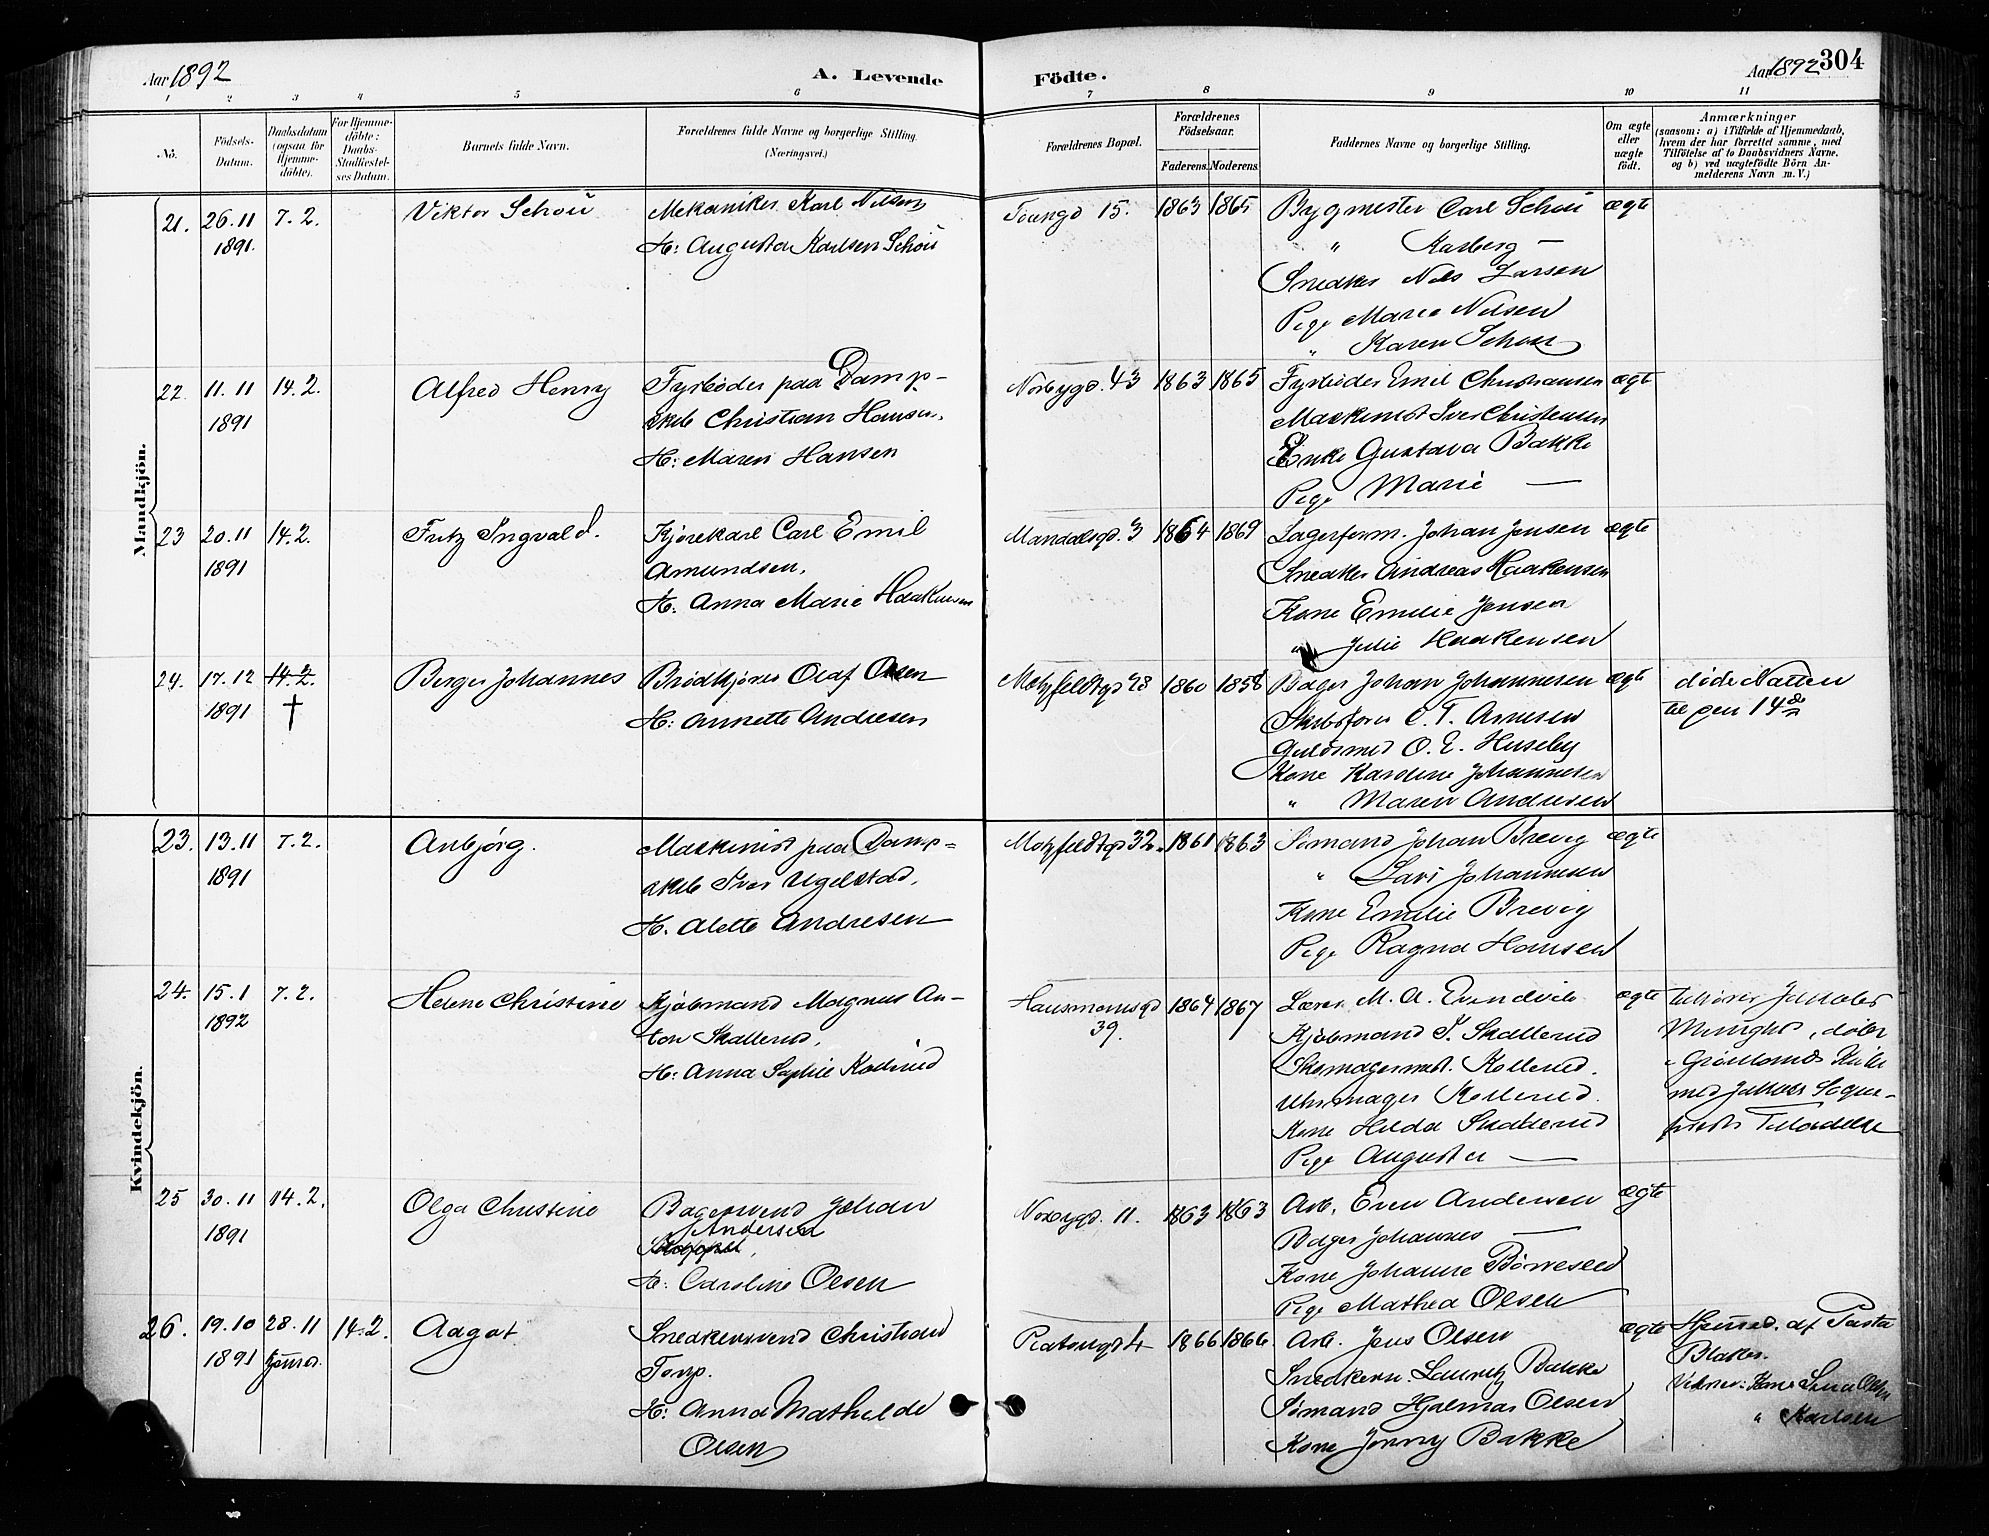 Aar 1892
A. Levende
Födte.
Aar 1892 304
1 2 3 4 5 6 7 8 9 10 11
No.
Födsels-
Datum.
Daabsdatum
(ogsaa för
Hjemme-
döbte).
For Hjemme-
döbte:
Daabs-
Stadfæstel-
ses Datum.
Barnets fulde Navn.
Forældrenes fulde Navne og borgerlige Stilling.
(Næringsvei.)
Forældrenes Bopæl.
Forældrenes
Födselsaar.
Faderens. Moderens.
Faddernes Navne og borgerlige Stilling.
Om ægte
eller
uægte
födt.
Anmærkninger
(saasom: a) i Tilfælde af Hjemmedaab,
hvem der har forrettet samme, med
Tilföielse af to Daabsvidners Navne.
og b) ved uægtefödte Börn An-
melderens Navn m. V.)
Mandkjön.
21. 26.11 7.2. Viktor Schou Mekaniker Karl Nilsen 15. 1863 1865 Bygmester Carl Schou ægte
1891. H: Augusta Karlsen Schou
" Karberg —
Snedker Nils Larsen
Pige Marie Nilsen
" Karen Schou
22. 11.11 14.2. Alfred Henry Fyrbøder paa Damp- Norbygd. 43 1863 1865 Fyrbøder Emil Christiansen ægte
1891 skib Christian Hansen. Maskinist Iver Christensen
H: Maren Hansen Enke Gustava Bakke
Pige Marie —
23 20.11 14.2. Fritz Ingvald. Kjørekarl Carl Emil Mandalsgd. 3 1864 1869 Lagerform. Johan Jensen ægte
1891 Amundsen. Snedker Andreas Haakensen
H: Anna Marie Haakensen Kone Emilie Jensen
" Julie Haakensen
24. 17.12 14.2. Berger Johannes Brødkjører Olaf Olsen Motzfeldtgd 28 1860 1858 Bager Johan Johannesen ægte døde Natten
1891 † H: Annette Andresen C. T. Arnesen til den 14de
Guldsmed O. E. Huseby
Kone Karoline Johannesen
" Maren Andresen
Kvindekjön.
23. 13.11 7.2. Anbjørg. Maskinist paa Damp= Motzfeldtgd 32. 1861 1863 Sømand Johan Brevig ægte
1891 skib Iver Ugelstad. " Lars Johannesen
H. Alette Andresen Kone Emilie Brevig
Pige Ragna Hansen
24. 15.1 7.2. Helene Christine Kjøbmand Magnus An- Hausmannsgd 1864 1867 Lærer M. A. ægte tilhører Jakobs
1892 ton Skallerud. 39. Kjøbmand S. Skallerud Menighed, døbt
H: Anna Sophie Kollerud Skomagermest. Kollerud. i Grønlands Kirke
Uhrmager Kollerud. med Jakobs Sogne-
Kone Hilda Skallerud præsts Tilladelse
Pige Augusta —
25 30.11 14.2. Olga Christine Bagersvend Johan Norbygd. 11. 1863 1863 Arb. Even Andersen ægte
1891 Andersen Bager Johannes —
H: Caroline Olsen Kone Johanne Børresen
Pige Mathea Olsen
26. 19.10 28.11 14.2. Aagot Snedkersvend Christian Platougd 4 1866 1866 Arb. Jens Olsen ægte Hjemmed. af Pastor
1891 hjemmed. Torp. Snedkersv. Lauritz Bakke Blaker.
H: Anna Mathilde Sømand Hjalmar Olsen Vidner: Kone Lina Olsen
Olsen Kone Jenny Bakke " Karlsen